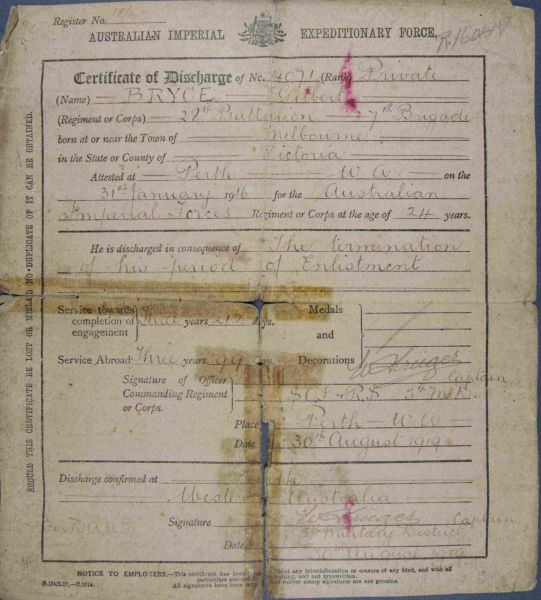 Register No.
AUSTRALIAN IMPERIAL EXPEDITIONARY FORCE.
Certificate of Discharge of No. 4071 (Rank) Private
(Name) BRYCE Gilbert
(Regiment or Corps) 28th Battalion 7th Brigade
born at or near the Town of Melbourne
in the State or County of Victoria
Attested at Perth W.A. on the
31st January 1916 for the Australian
Imperial Forces Regiment or Corps at the age of 24 years.
He is discharged in consequence of The termination
of his period of Enlistment
Service towards completion of engagement Three years days.
Medals and Decorations
Service Abroad Three years 99 days.
Signature of Officer Commanding Regiment or Corps.
W Kruger Captain
Place Perth W.A
Date 30th August 1919
Discharge confirmed at Perth
Western Australia
Signature W Kruger Captain
5th Military District
Date 30th August 1919
NOTICE TO EMPLOYERS.—This certificate has been without any interlineation or erasure of any kind, and with all
particulars and not typewritten.
All signatures have rubber stamp signatures are not genuine.
SHOULD THIS CERTIFICATE BE LOST OR MISLAID NO DUPLICATE OF IT CAN BE OBTAINED.